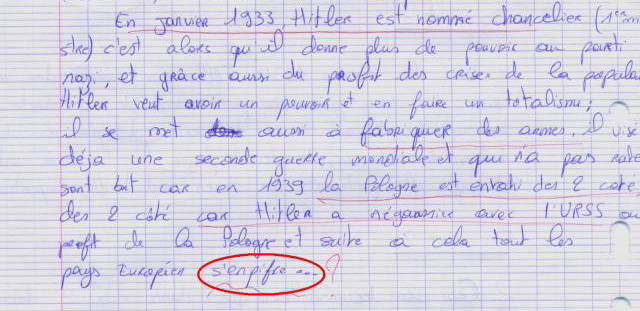 En janvier 1933, Hitler est nommé chancelier (1er mi
stre) c'est alors qu'il donne plus de pouvoir au parti
nazi, et grâce aussi du profit des crises de la popula
Hitler veut avoir un pouvoir et en faire un totalisme ;
il se met aussi à fabriquer des armes, il vise
déja une seconde guerre mondiale et qui n'a pas raté
sont but car en 1939 la Pologne est envahi des 2 coté,
des 2 côté car Hitler a avec l'URSS au
profit de la Pologne et suite a cela tout les
pays Européen s'enpifre ... ?